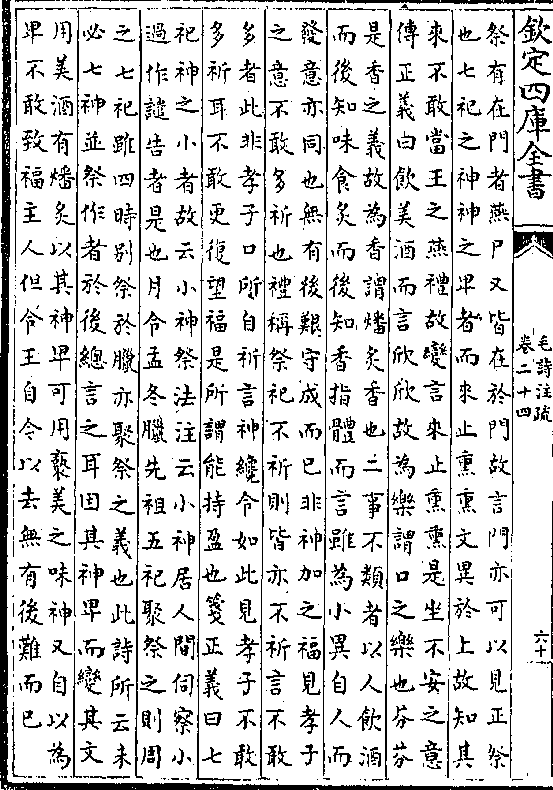 欽定四庫全書
毛詩注疏
卷二十四
六十
祭有在門者燕尸又皆在於門故言門亦可以見正祭
也七祀之神神之卑者而來止熏熏文異於上故知其
來不敢當王之燕禮故變言來止熏熏是坐不安之意
傳正義曰飲美酒而言欣欣故為樂謂口之樂也芬芬
是香之義故為香謂燔炙香也二事不類者以人飲酒
而後知味食炙而後知香指體而言雖為小異自人而
發意亦同也無有後艱守成而已非神加之福見孝子
之意不敢多祈也禮稱祭祀不祈則皆亦不祈言不敢
多者此非孝子口所自祈言神纔令如此見孝子不敢
多祈耳不敢更復望福是所謂能持盈也箋正義曰七
祀神之小者故云小神祭法注云小神居人間伺察小
過作譴告者是也月令孟冬臘先祖五祀聚祭之則周
之七祀雖四時別祭於臘亦聚祭之義也此詩所云未
必七神並祭作者於後總言之耳因其神卑而變其文
用美酒有燔炙以其神卑可用褻美之味神又自以為
卑不敢致福主人但令王自今以去無有後難而已